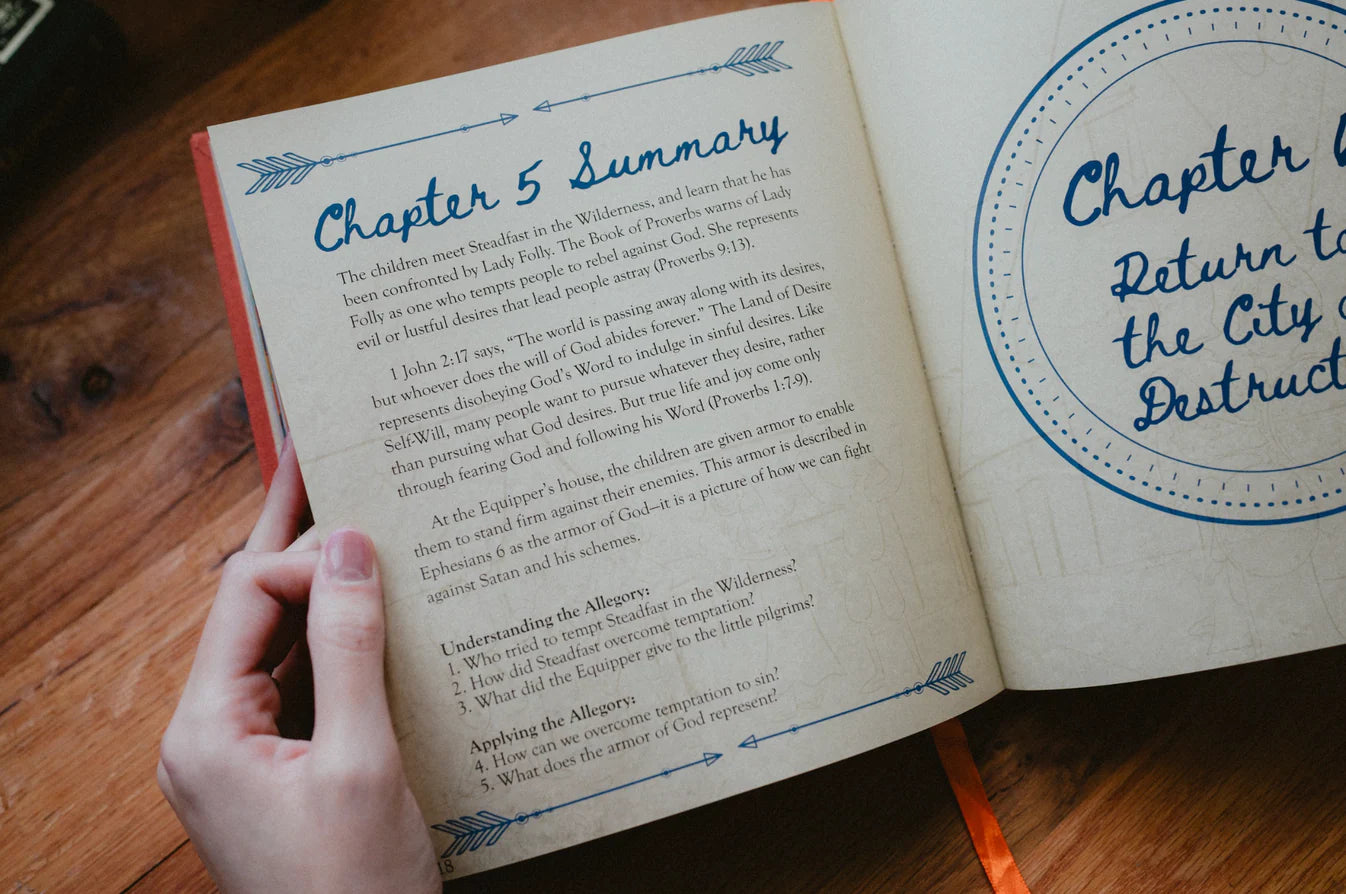 Chapter 5 Summary
The children meet Steadfast in the Wilderness, and learn that he has
been confronted by Lady Folly. The Book of Proverbs warns of Lady
Folly as one who tempts people to rebel against God. She represents
evil or lustful desires that lead people astray (Proverbs 9:13).
1 John 2:17 says, “The world is passing away along with its desires,
but whoever does the will of God abides forever.” The Land of Desire
represents disobeying God’s Word to indulge in sinful desires. Like
Self-Will, many people want to pursue whatever they desire, rather
than pursuing what God desires. But true life and joy come only
through fearing God and following his Word (Proverbs 1:7-9).
At the Equipper’s house, the children are given armor to enable
them to stand firm against their enemies. This armor is described in
Ephesians 6 as the armor of God—it is a picture of how we can fight
against Satan and his schemes.
Understanding the Allegory:
1. Who tried to tempt Steadfast in the Wilderness?
2. How did Steadfast overcome temptation?
3. What did the Equipper give to the little pilgrims?
Applying the Allegory:
4. How can we overcome temptation to sin?
5. What does the armor of God represent?
Chapter
Return to
the City
Destruct